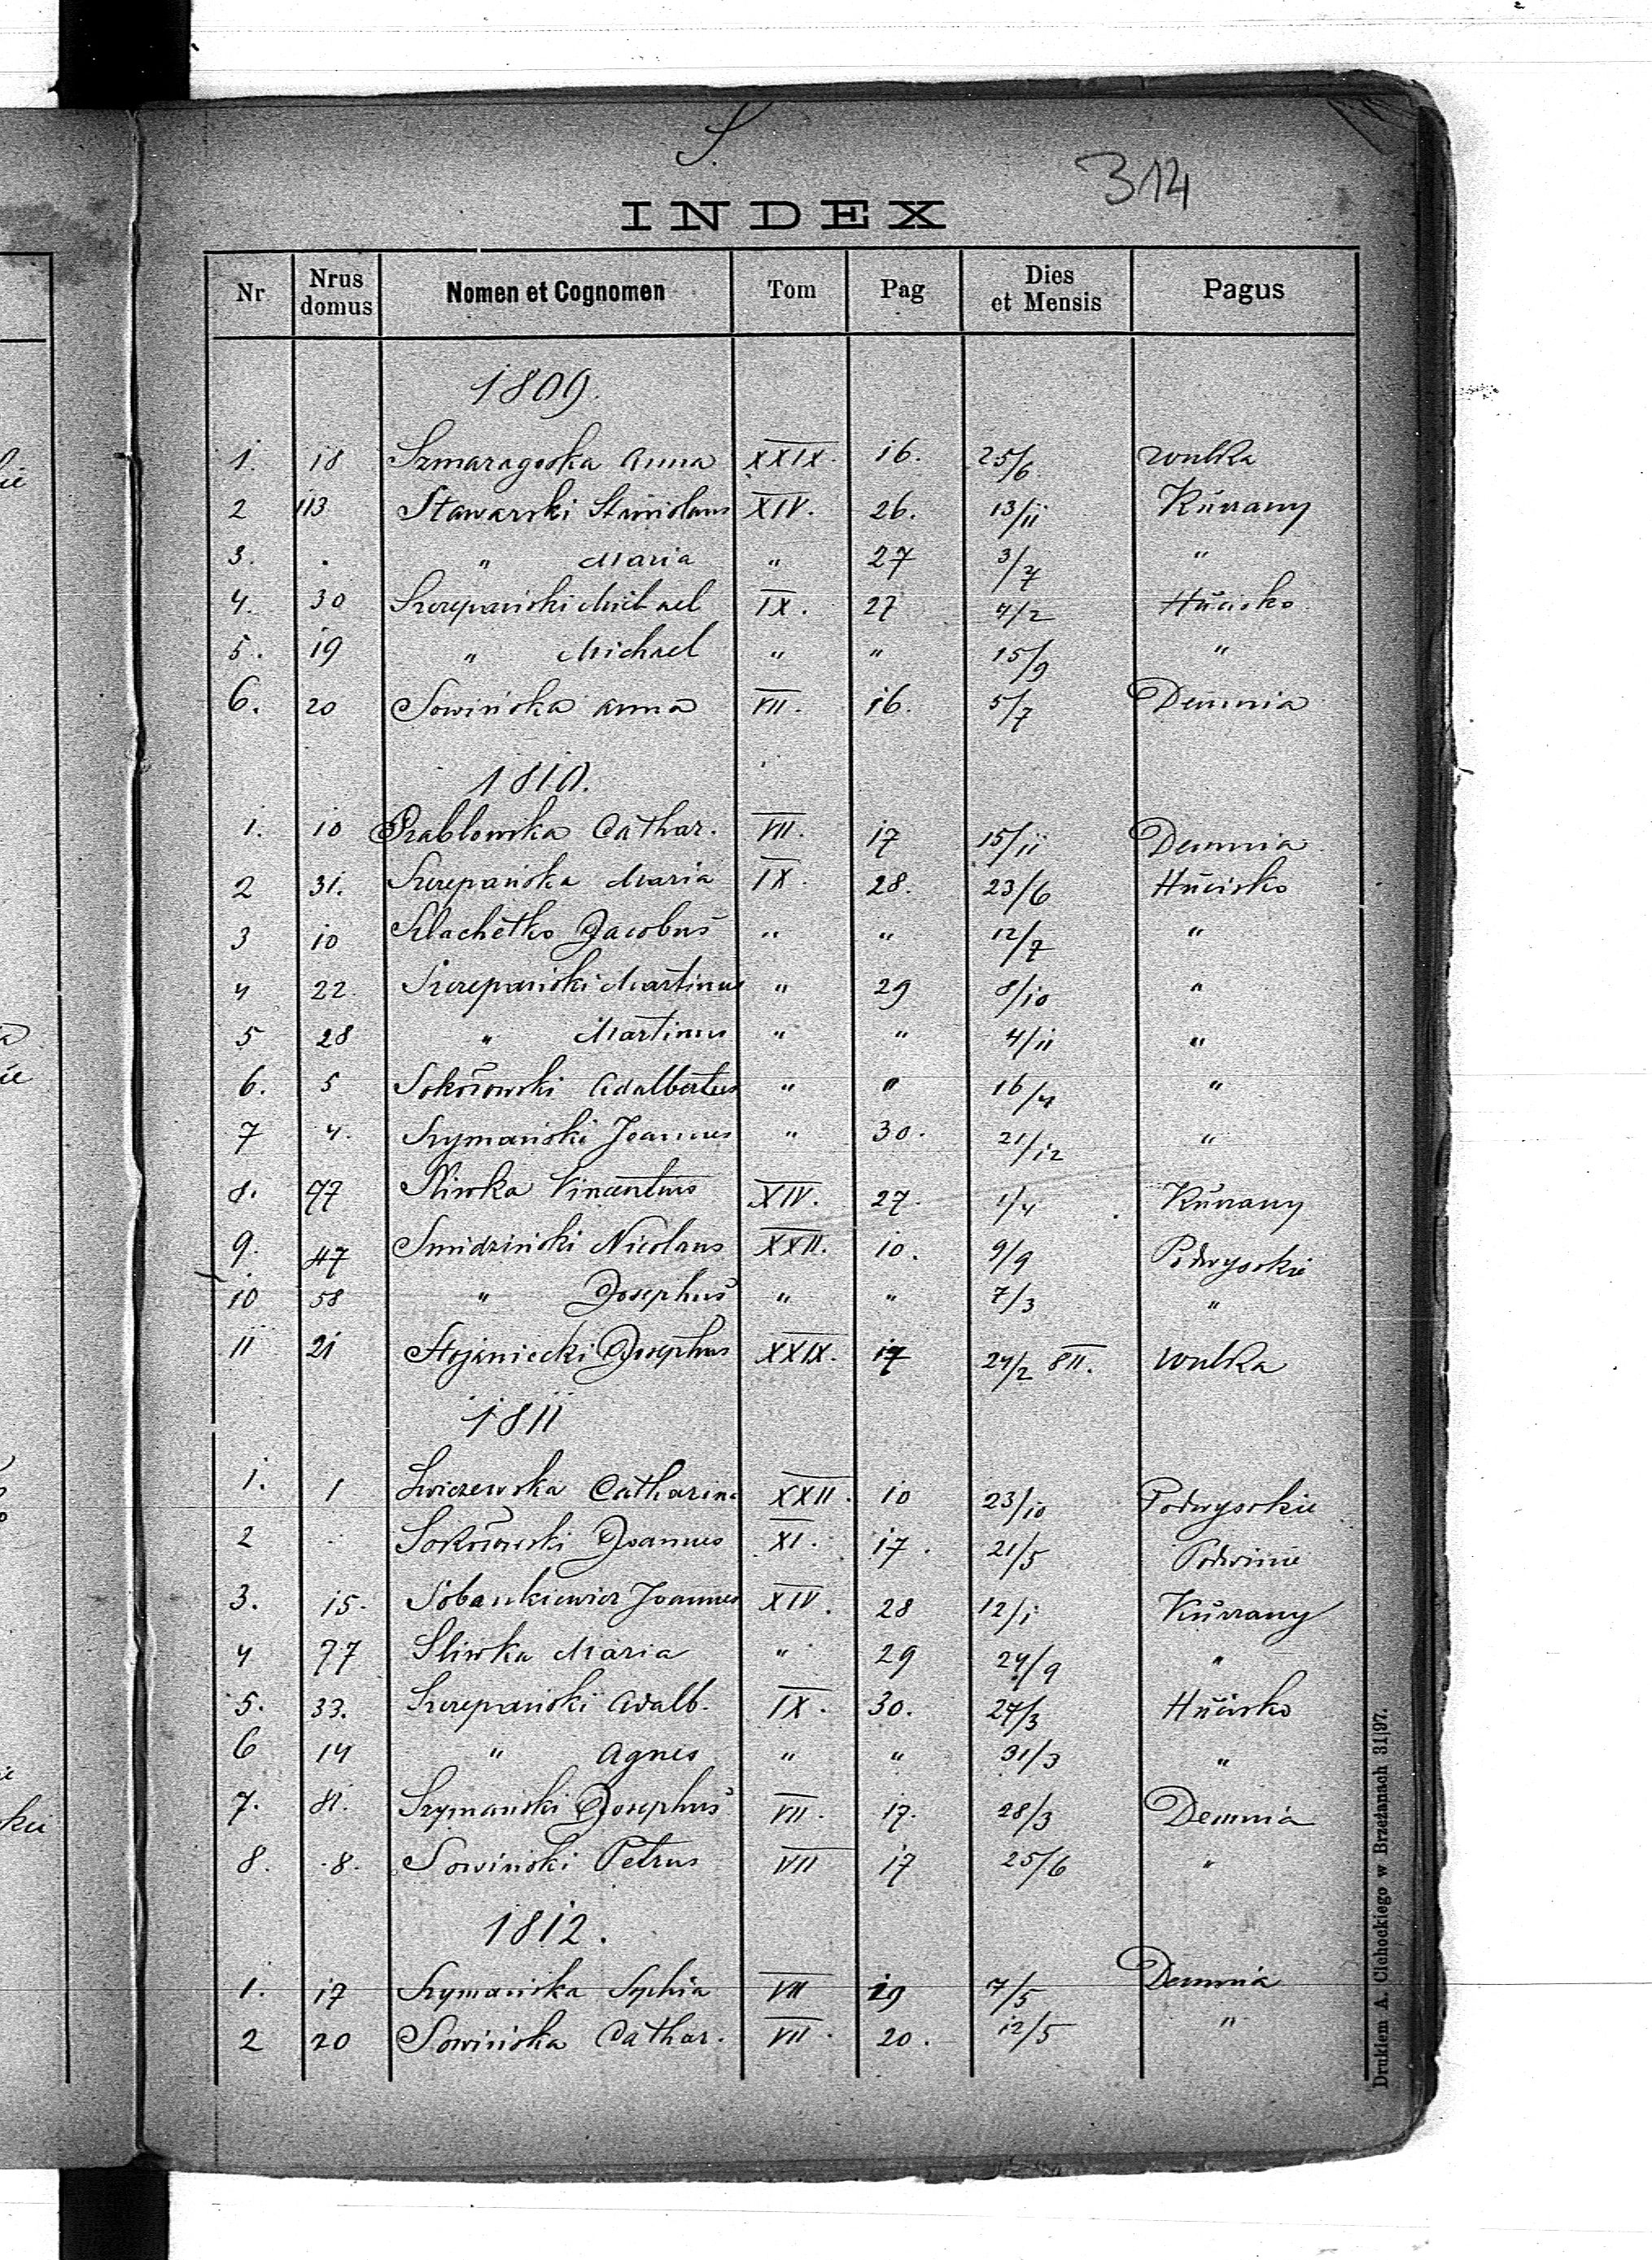 S.
314
INDEX
Nr | Nrus domus | Nomen et Cognomen | Tom | Pag | Dies et Mensis | Pagus
1809.
1. 18 Szmaragoska Anna XXIX. 16. 25/6 Wulka
2 113 Stawarski Stanislaus XIV. 26. 13/11 Kurzany
3. . " Maria " 27 3/7 "
4. 30 Szczepański Michael IX. 27 4/2 Hŭcisko
5. 19 " Michael " " 15/9 "
6. 20 Sowińska Anna VII. 16. 5/7 Demnia
1810.
1. 10 Cathar. VII. 17 15/11 Demnia
2 31. Szczepańska Maria IX. 28. 23/6 Hŭcisko
3 10 Szlachetko Jacobŭs " " 12/7 "
4 22. Szczepański Martinus " 29 8/10 "
5 28 " Martinus " " 4/11 "
6. 5 Sokołowski Adalbertus " " 16/4 "
7 4. Szymański Joannes " 30. 21/12 "
8. 77 Śliwka Vincentius XIV. 27. 1/4 Kŭrzany
9. 47 Smidziński Nicolaus XXII. 10. 9/9 Podwysokie
10 58 " Josephŭs " " 7/3 "
11 21 Stojaniecki Josephus XXIX. 17 24/2 811. Wulka
1811
1. 1 Catharina XXII. 10 23/10 Podwysokie
2 . Sokołowski Joannes XI. 17. 21/5
3. 15. Sobankiewicz Joannes XIV. 28 12/1 Kŭrzany
4 77 Sliwka Maria " 29 24/9 "
5. 33. Szczepański Adalb. IX. 30. 27/3 Hŭcisko
6 14 " Agnes " " 31/3 "
7. 81. Szymanski Josephŭs VII. 17. 28/3 Demnia
8. 8. Sowinski Petrus VII 17 25/6 "
1812.
1. 17 Szymańska Sophia VII 19 7/5 Demnia
2 20 Sowińska Cathar. VII. 20. 12/5 "
Drukiem A. Cichockiego w Brzeżanach 31|97.